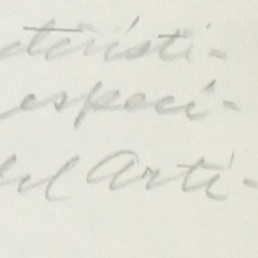 cterísti-
especi-
del Arti-